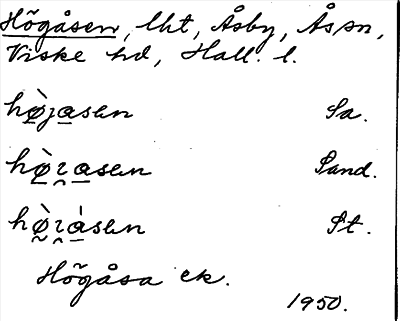 Högåsen, lht, Åsby, Åsn,
Viske hd, Hall. l.
hø̠̀ja̠sen Sa.
hø̠̀ɿ̯a̠sen Sand.
hø̰̀ɿ̯á̠sen St.
Högåsa ek.
1950.